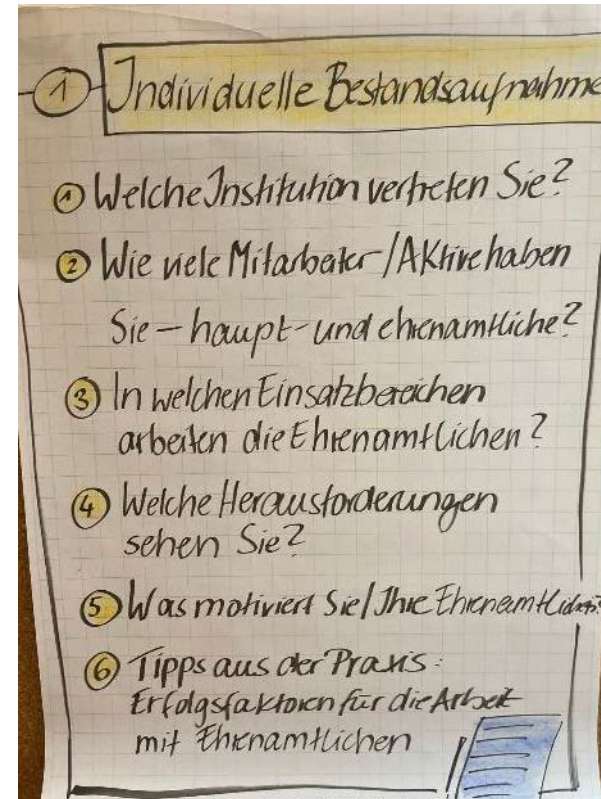 1 Individuelle Bestandsaufnahme
1 Welche Institution vertreten Sie?
2 Wie viele Mitarbeiter/Aktive haben
Sie – haupt- und ehrenamtliche?
3 In welchen Einsatzbereichen
arbeiten die Ehrenamtlichen?
4 Welche Herausforderungen
sehen Sie?
5 Was motiviert Sie/Ihre Ehrenamtlichen?
6 Tipps aus der Praxis:
Erfolgsfaktoren für die Arbeit
mit Ehrenamtlichen